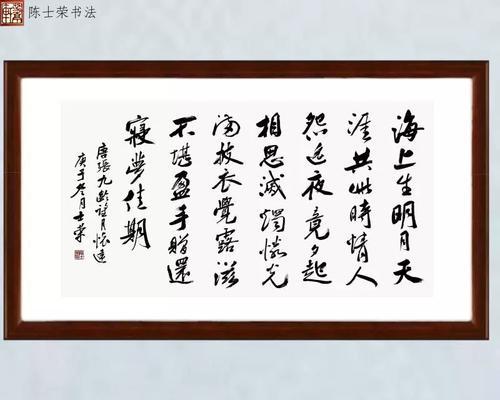 陈士荣书法
海上生明月天
涯共此时情人
怨遥夜竟夕起
相思灭烛怜光
满披衣觉露滋
不堪盈手赠还
寝梦佳期
唐张九龄望月怀远
庚子冬月士荣